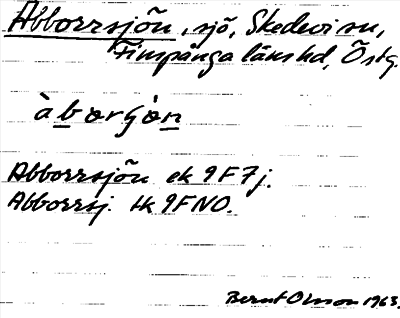 Abborrsjön, sjö, Skedevi sn,
Finspånga länshd, Östg.
àbɷrʃö̀n
Abborrsjön ek 9F7j.
Abborrsj. tk 9FNO.
Bernt Olsson 1963.